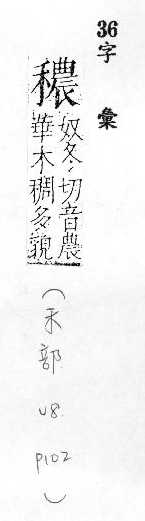 36字彙
穠
奴冬切音農
華木稠多貌
(禾部 U8 P102)